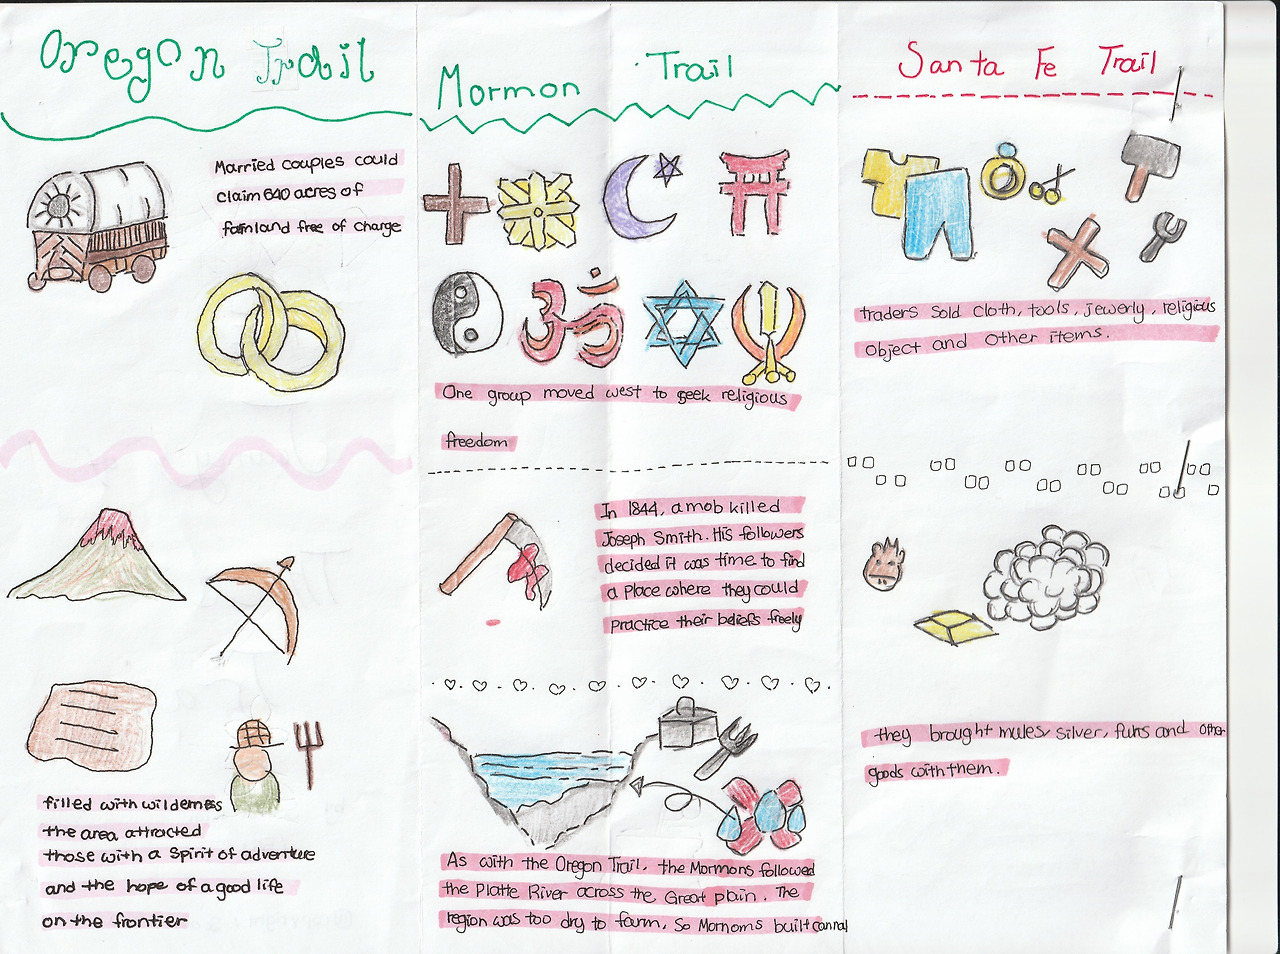 Oregon Trail
Married couples could
claim 640 acres of
farmland free of charge
filled with wilderness
the area attracted
those with a spirit of adventure
and the hope of a good life
on the frontier
Mormon Trail
One group moved west to seek religious
freedom
In 1844, a mob killed
Joseph Smith. His followers
decided it was time to find
a Place where they could
practice their beliefs freely
As with the Oregon Trail, the Mormons followed
the Platte River across the Great plain. The
region was too dry to farm, So Mormoms built cannal
Santa Fe Trail
traders sold cloth, tools, jewerly, religious
object and other items.
they brought mules, silver, furs and other
goods with them.